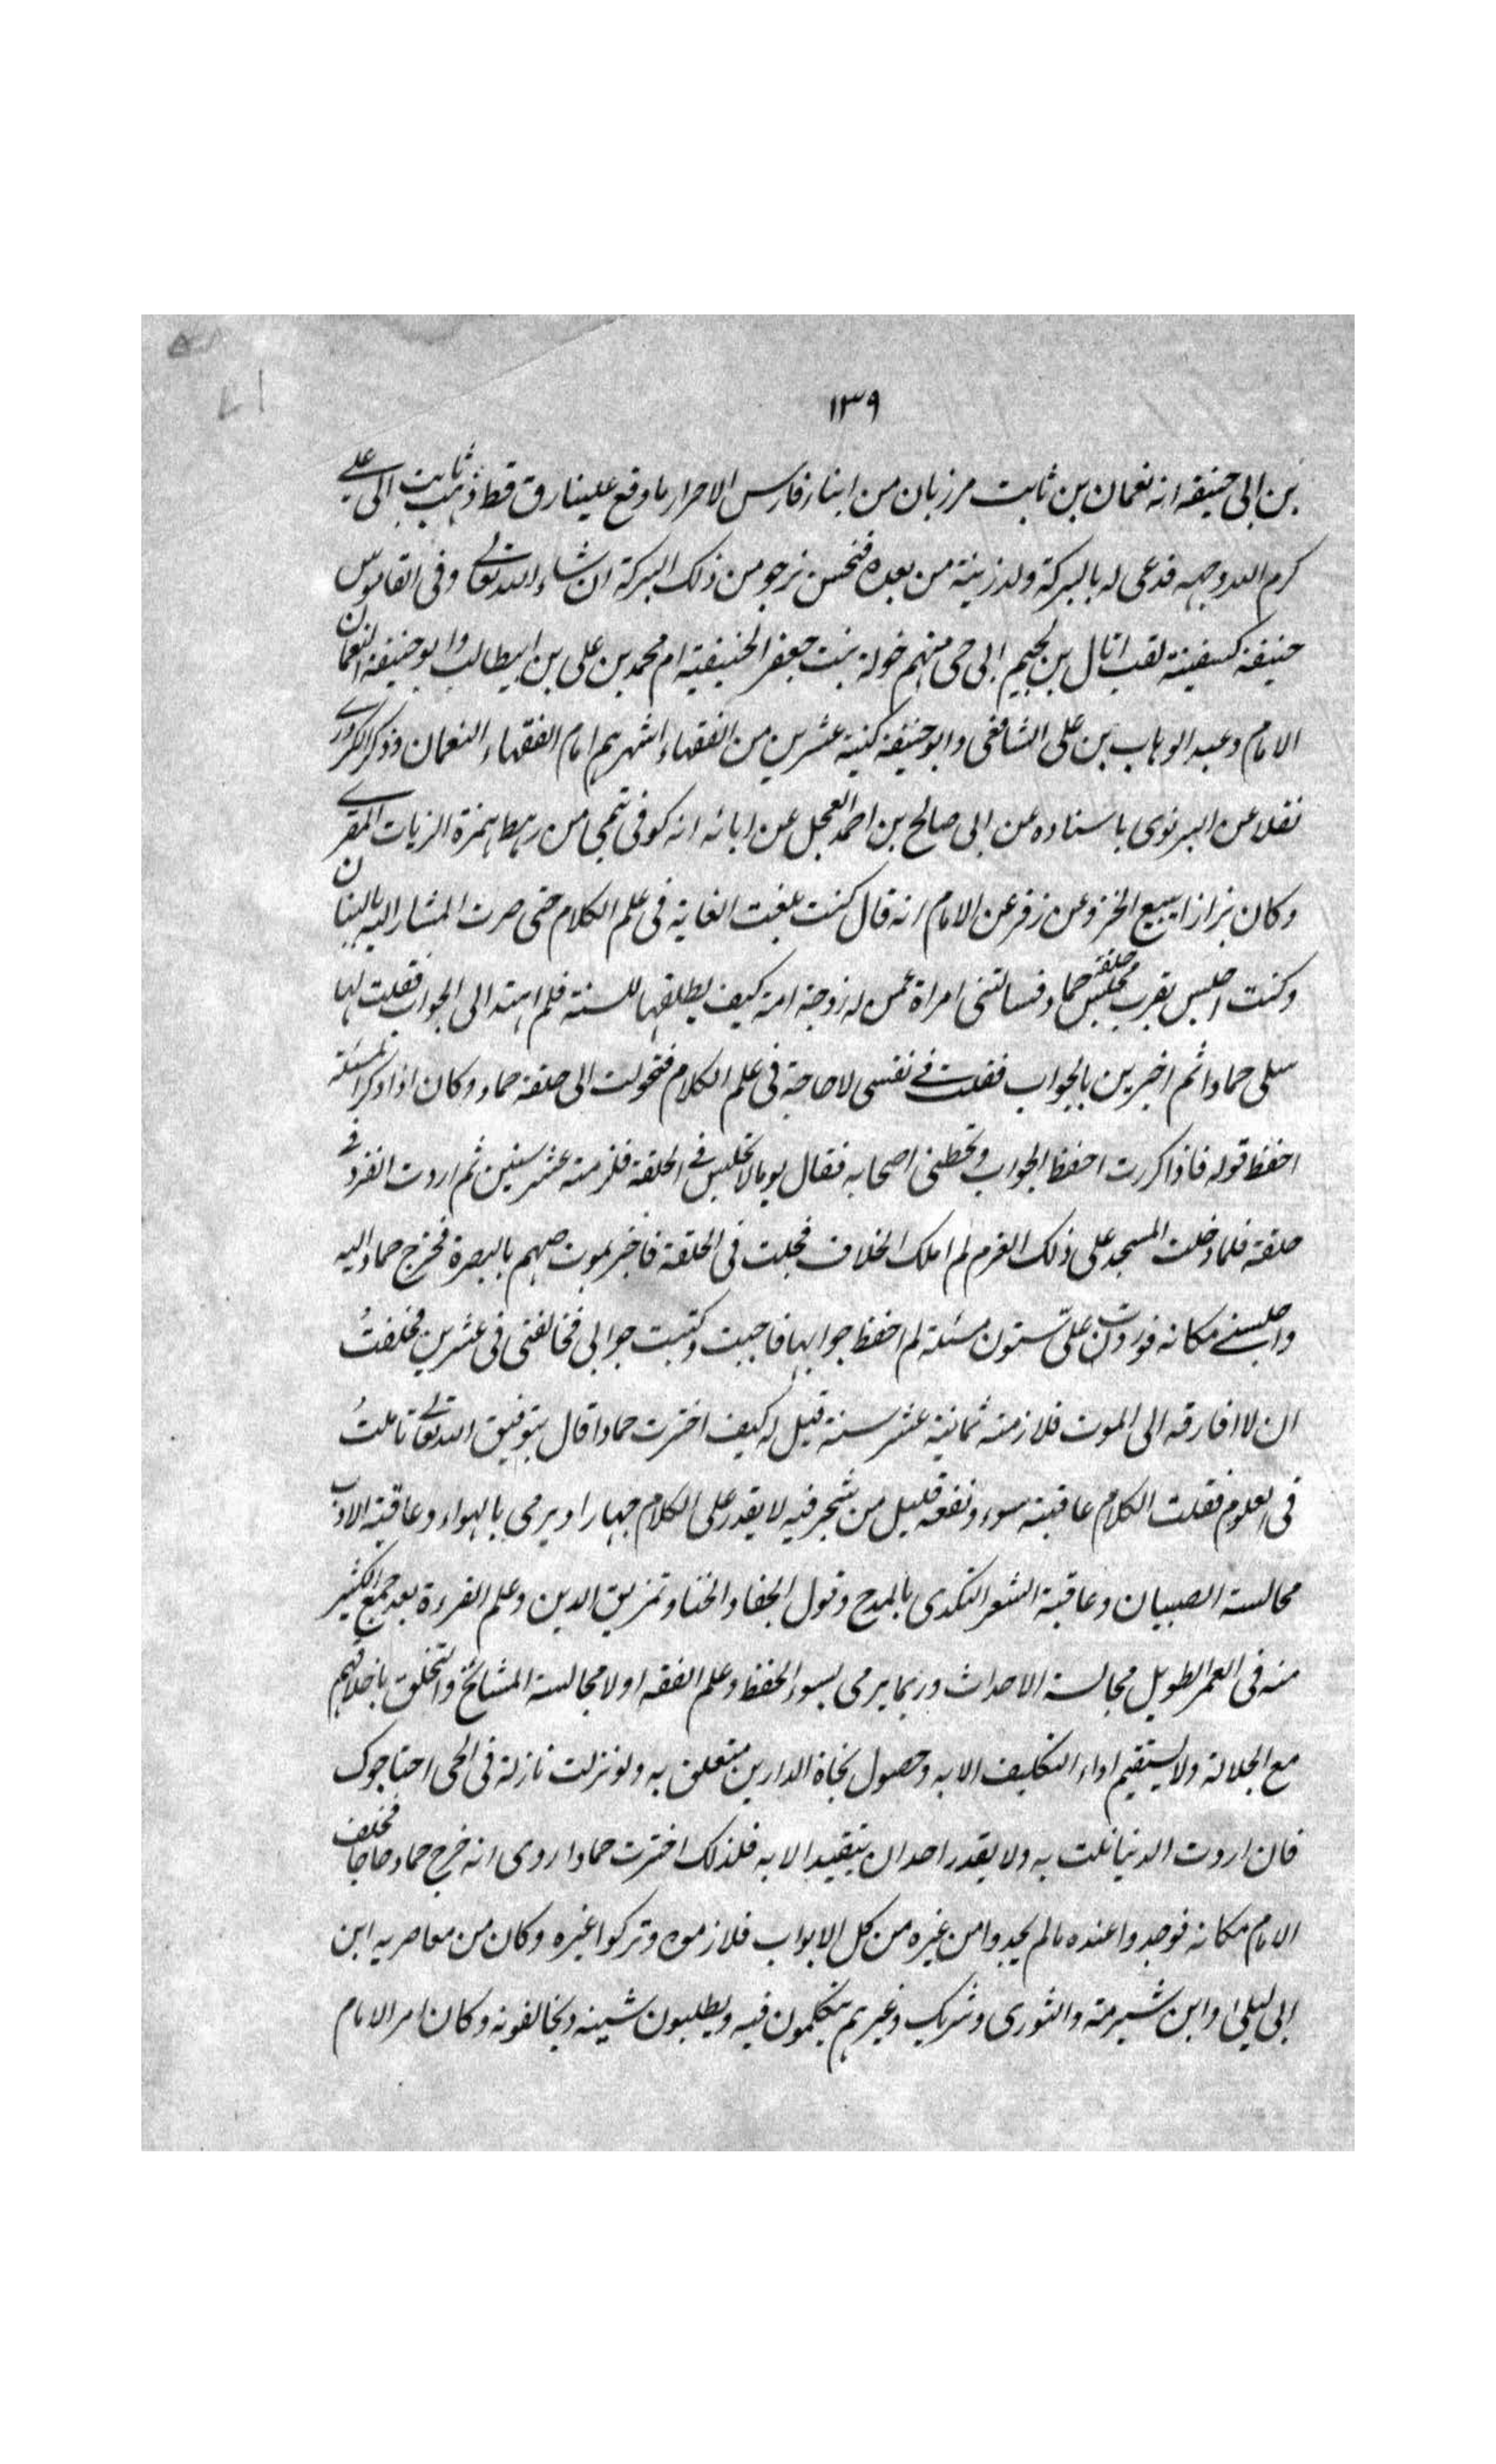 ١٣٩
بن ابی حنیفه انه نعمان بن ثابت مرزبان من ابناء فارس الاحرار ما وقع علینا رق قط ذهب ثابت الی علی
كرم الله وجهه فدعی له بالبركة ولد زینة من بعده فنحن نرجو من ذلك البركة ان شاء الله تعالی وفی القاموس
حنیفة كسفینة لقب اثال بن لجیم ابی حی منهم خولة بنت جعفر الحنیفیة ام محمد بن علی بن ابیطالب وابو حنیفة النعمان
الامام وعبد الوهاب بن علی الشافعی وابو حنیفة كنیة عشرین من الفقهاء اشهرهم امام الفقهاء النعمان وذكر الكردری
نقلا عن البرنوی باسناده عن ابی صالح بن احمد العجل عن ابائه انه كوفی تیمی من رهط همزة الزیات المقری
وكان بزازا یبیع الخز وعن زفر عن الامام انه قال كنت بلغت الغایة فی علم الكلام حتی صرت المشار الیه بالبنان
وكنت اجلس بقرب مجلس حلقة حماد فسالتنی امراة عمن له زوجة امة كیف یطلقها للسنة فلم اهتد الی الجواب فقلت لها
سلی حمادا ثم اخبرین بالجواب فقلت فی نفسی لا حاجة فی علم الكلام فتحولت الی حلقة حماد وكان اذا ذكر المسئلة
احفظ قوله فاذا كررت احفظ الجواب وتخطئ اصحابه فقال یوما لا تجلس فی الحلقة فلزمته عشر سنین ثم اردت انفرد فی
حلقة فلما دخلت المسجد علی ذلك العزم لم املك الخلاف فجلت فی الحلقة فاخبر بموت صهم بالبصرة فخرج حماد الیه
واجلسنی مكانه فوردت علی ستون مسئلة لم احفظ جوابها فاجبت وكتبت جوابی فخالفتی فی عشرین فحلفت
ان لا افارقه الی الموت فلازمته ثمانیة عشر سنة قیل له كیف اخترت حمادا قال بتوفیق الله تعالی تاملت
فی العلوم فقلت الكلام عاقبته سوء ونفعه قلیل من شجر فیه لا یقدر علی الكلام جهارا ویرمی بالهواء وعاقبة الادب
مجالسة الصبیان وعاقبة الشعر التكدی بالمدح وقول الجفا والخنا وتمزیق الدین وعلم القرءة بعد جمع الكثیر
منه فی العمر الطویل مجالسة الاحداث وربما یرمی بسوء الحفظ وعلم الفقه اولا مجالسة المشائخ والتخلق باخلاقهم
مع الجلالة ولا یستقیم اداء التكلیف الا به وحصول نجاة الدارین متعلق به ولو نزلت نازلة فی الحی احتاجوك
فان اردت الدنیا نلت به ولا یقدر احد ان یتقید الا به فلذلك اخترت حمادا روی انه خرج حماد حاجا فخلف
الامام مكانه فوجدوا عنده ما لم یجدوا من غیره من كل الابواب فلازموه وتركوا غیره وكان من معاصریه ابن
ابی لیلی وابن شبرمة والثوری وشریك وغیرهم یتكلمون فیه ویطلبون شینه ویخالفونه وكان امر الامام